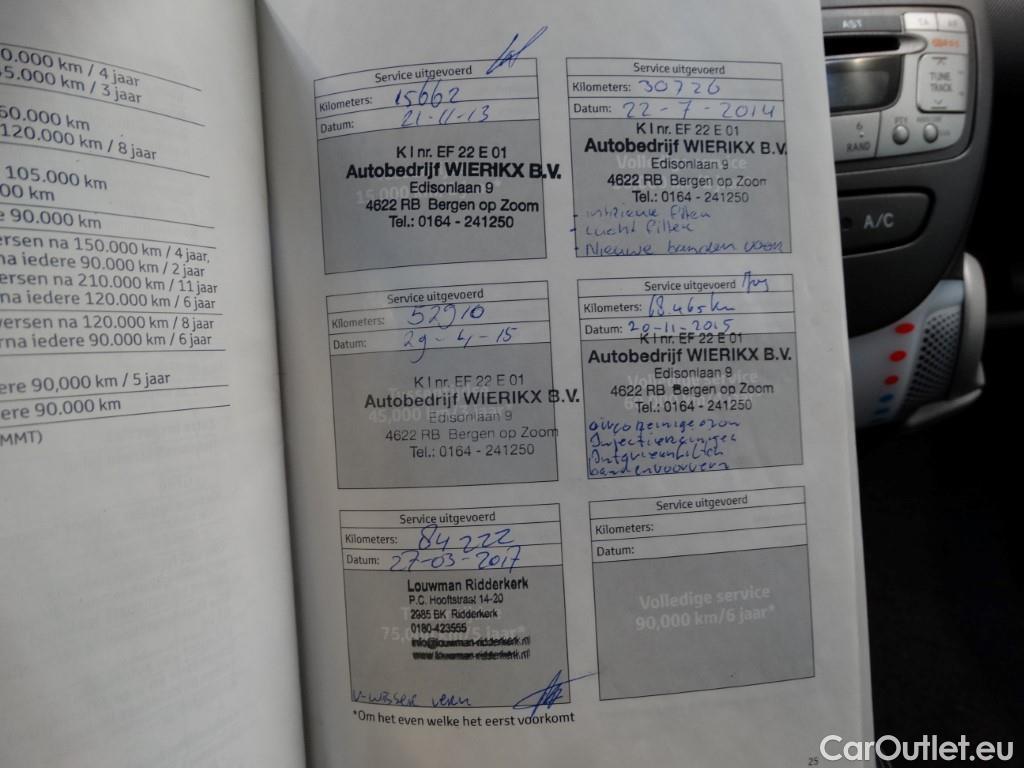 0.000 km / 4 jaar
45.000 km / 3 jaar
60.000 km
120.000 km / 8 jaar
105.000 km
00 km
re 90.000 km
ersen na 150.000 km / 4 jaar,
na iedere 90.000 km / 2 jaar
ersen na 210.000 km / 11 jaar
rna iedere 120.000 km / 6 jaar
versen na 120.000 km / 8 jaar
erna iedere 90.000 km / 6 jaar
ere 90,000 km / 5 jaar
dere 90.000 km
MMT)
Service uitgevoerd
Kilometers: 15662
Datum: 21-11-13
K I nr. EF 22 E 01
Autobedrijf WIERIKX B.V.
Edisonlaan 9
4622 RB Bergen op Zoom
Tel.: 0164 - 241250
Service uitgevoerd
Kilometers: 30726
Datum: 22-7-2014
K I nr. EF 22 E 01
Autobedrijf WIERIKX B.V.
Edisonlaan 9
4622 RB Bergen op Zoom
Tel.: 0164 - 241250
- interieur filter
- lucht filter
- Nieuwe banden voor
Service uitgevoerd
Kilometers: 52910
Datum: 29-4-15
K I nr. EF 22 E 01
Autobedrijf WIERIKX B.V.
45,000
Edisonlaan 9
4622 RB Bergen op Zoom
Tel.: 0164 - 241250
Service uitgevoerd
Kilometers: 68.465km
Datum: 20-11-2015
K I nr. EF 22 E 01
Autobedrijf WIERIKX B.V.
Edisonlaan 9
4622 RB Bergen op Zoom
Tel.: 0164 - 241250
Service uitgevoerd
Kilometers: 84222
Datum: 27-03-2017
Louwman Ridderkerk
P.C. Hooftstraat 14-20
2985 BK Ridderkerk
0180-423555
75,000 jaar*
info@louwman-ridderkerk.nl
www.louwman-ridderkerk.nl
Service uitgevoerd
Kilometers:
Datum:
Volledige service
90,000 km/6 jaar*
*Om het even welke het eerst voorkomt
25
AST
TA
AF
TUNE
TRACK
6
RAND
PTY
A/C
CarOutlet.eu